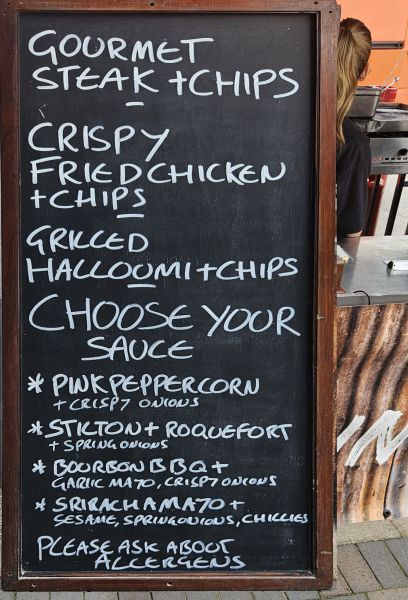 GOURMET
STEAK + CHIPS
CRISPY
FRIED CHICKEN
+ CHIPS
GRILLED
HALLOUMI + CHIPS
CHOOSE YOUR
SAUCE
* PINK PEPPERCORN
+ CRISPY ONIONS
* STILTON + ROQUEFORT
+ SPRING ONIONS
* BOURBON BBQ +
GARLIC MAYO, CRISPY ONIONS
* SRIRACHA MAYO +
SESAME, SPRING ONIONS, CHILLIES
PLEASE ASK ABOUT
ALLERGENS